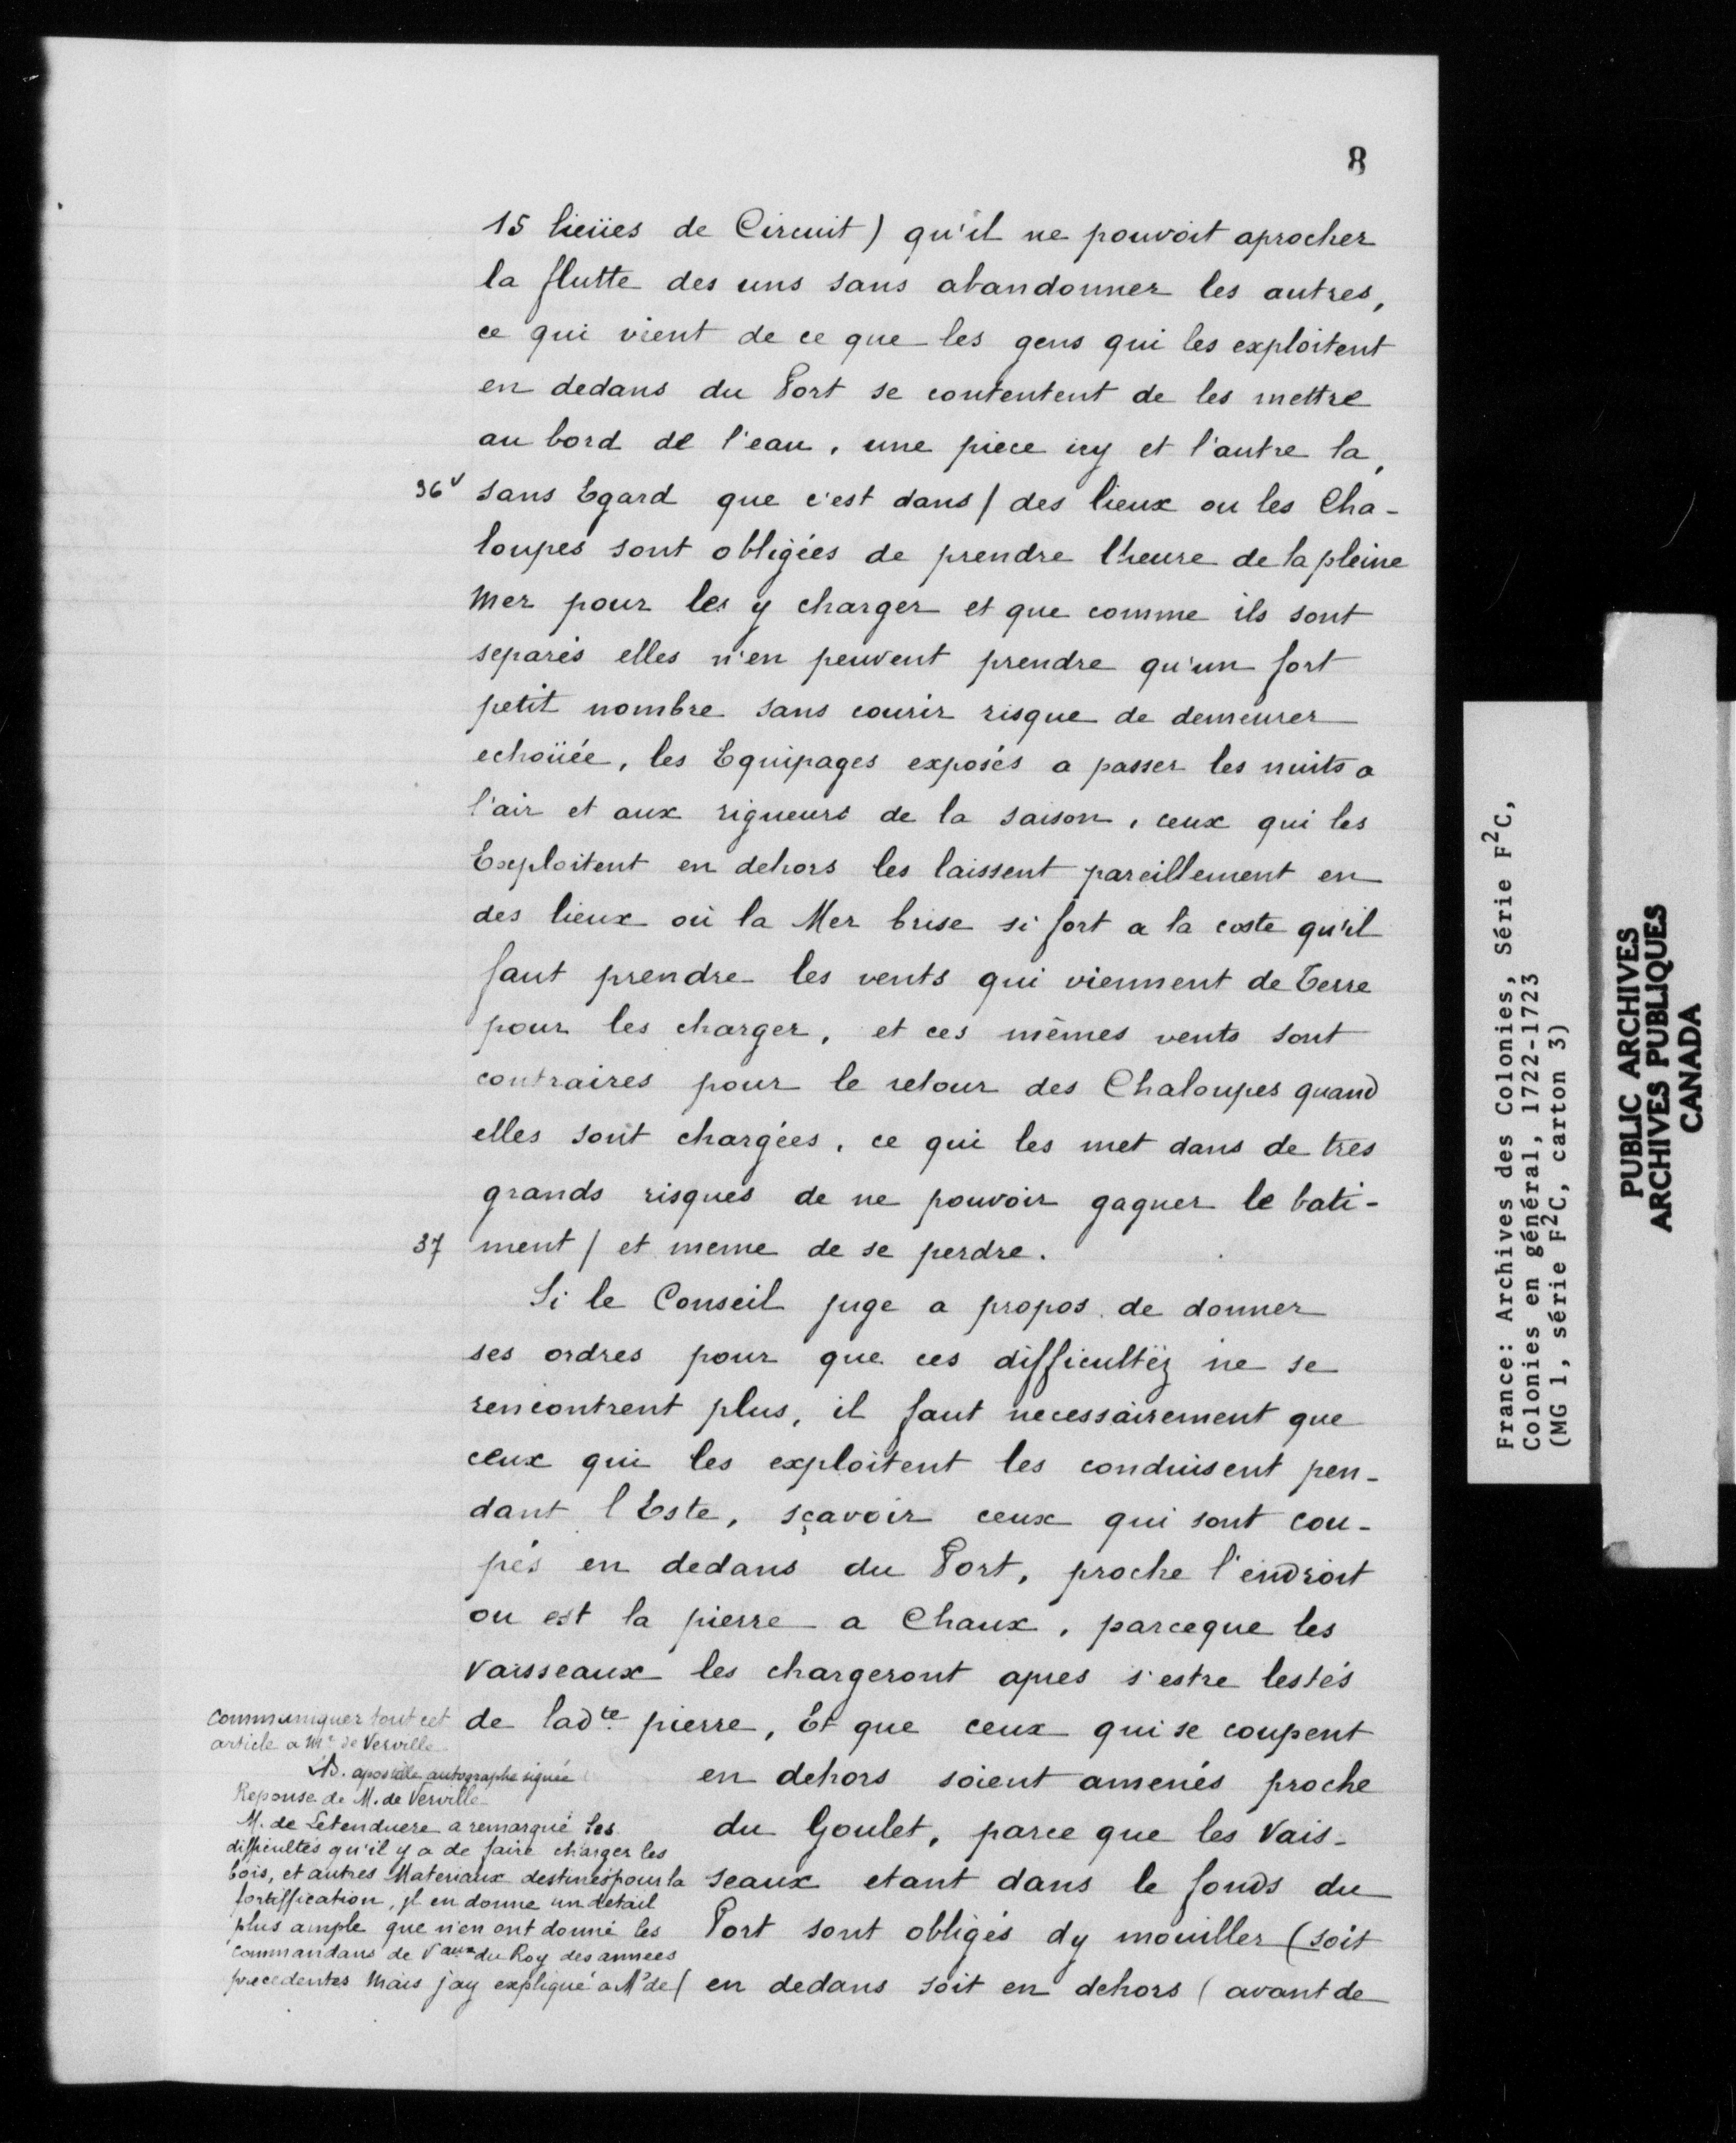 8
15 lieües de Circuit) qu'il ne pouvoit aprocher
la flutte des uns sans abandonner les autres,
ce qui vient de ce que les gens qui les exploitent
en dedans du Port se contentent de les mettre
au bord de l'eau, une piece icy et l'autre la,
36v sans Egard que c'est dans / des lieux ou les Cha-
loupes sont obligées de prendre lheure de la pleine
Mer pour les y charger et que comme ils sont
separés elles n'en peuvent prendre qu'un fort
petit nombre sans courir risque de demeurer
echoüée, les Equipages exposés a passer les nuits a
l'air et aux rigueurs de la saison, ceux qui les
Exploitent en dehors les laissent pareillement en
des lieux où la Mer brise si fort a la coste qu'il
faut prendre les vents qui viennent de Terre
pour les charger, et ces mêmes vents sont
contraires pour le retour des Chaloupes quand
elles sont chargées, ce qui les met dans de tres
grands risques de ne pouvoir gagner le bati-
37 ment / et meme de se perdre.
Si le Conseil juge a propos de donner
ses ordres pour que ces difficultéz ne se
rencontrent plus, il faut necessairement que
ceux qui les exploitent les conduisent pen-
dant l'Este, sçavoir ceux qui sont cou-
pés en dedans du Port, proche l'endroit
ou est la pierre a Chaux, parceque les
Vaisseaux les chargeront apres s'estre lestés
de ladte pierre, Et que ceux qui se coupent
en dehors soient amenés proche
du Goulet, parce que les Vais-
seaux etant dans le fonds du
Port sont obligés dy mouiller (soit
en dedans soit en dehors ( avant de
Communiquer tout cet
article a Mr de Verville
LB. apostille autographe signée
Reponse de M. de Verville
M. de Letenduere a remarqué les
difficultés qu'il y a de faire charger les
bois, et autres Materiaux destinés pour la
fortiffication, jl en donne un detail
plus ample que n'en ont donné les
Commandans de Vaux du Roy des annees
precedentes Mais jay expliqué a Mr de (
France: Archives des Colonies, Série F2C,
Colonies en général, 1722-1723
(MG 1, série F2C, carton 3)
PUBLIC ARCHIVES
ARCHIVES PUBLIQUES
CANADA